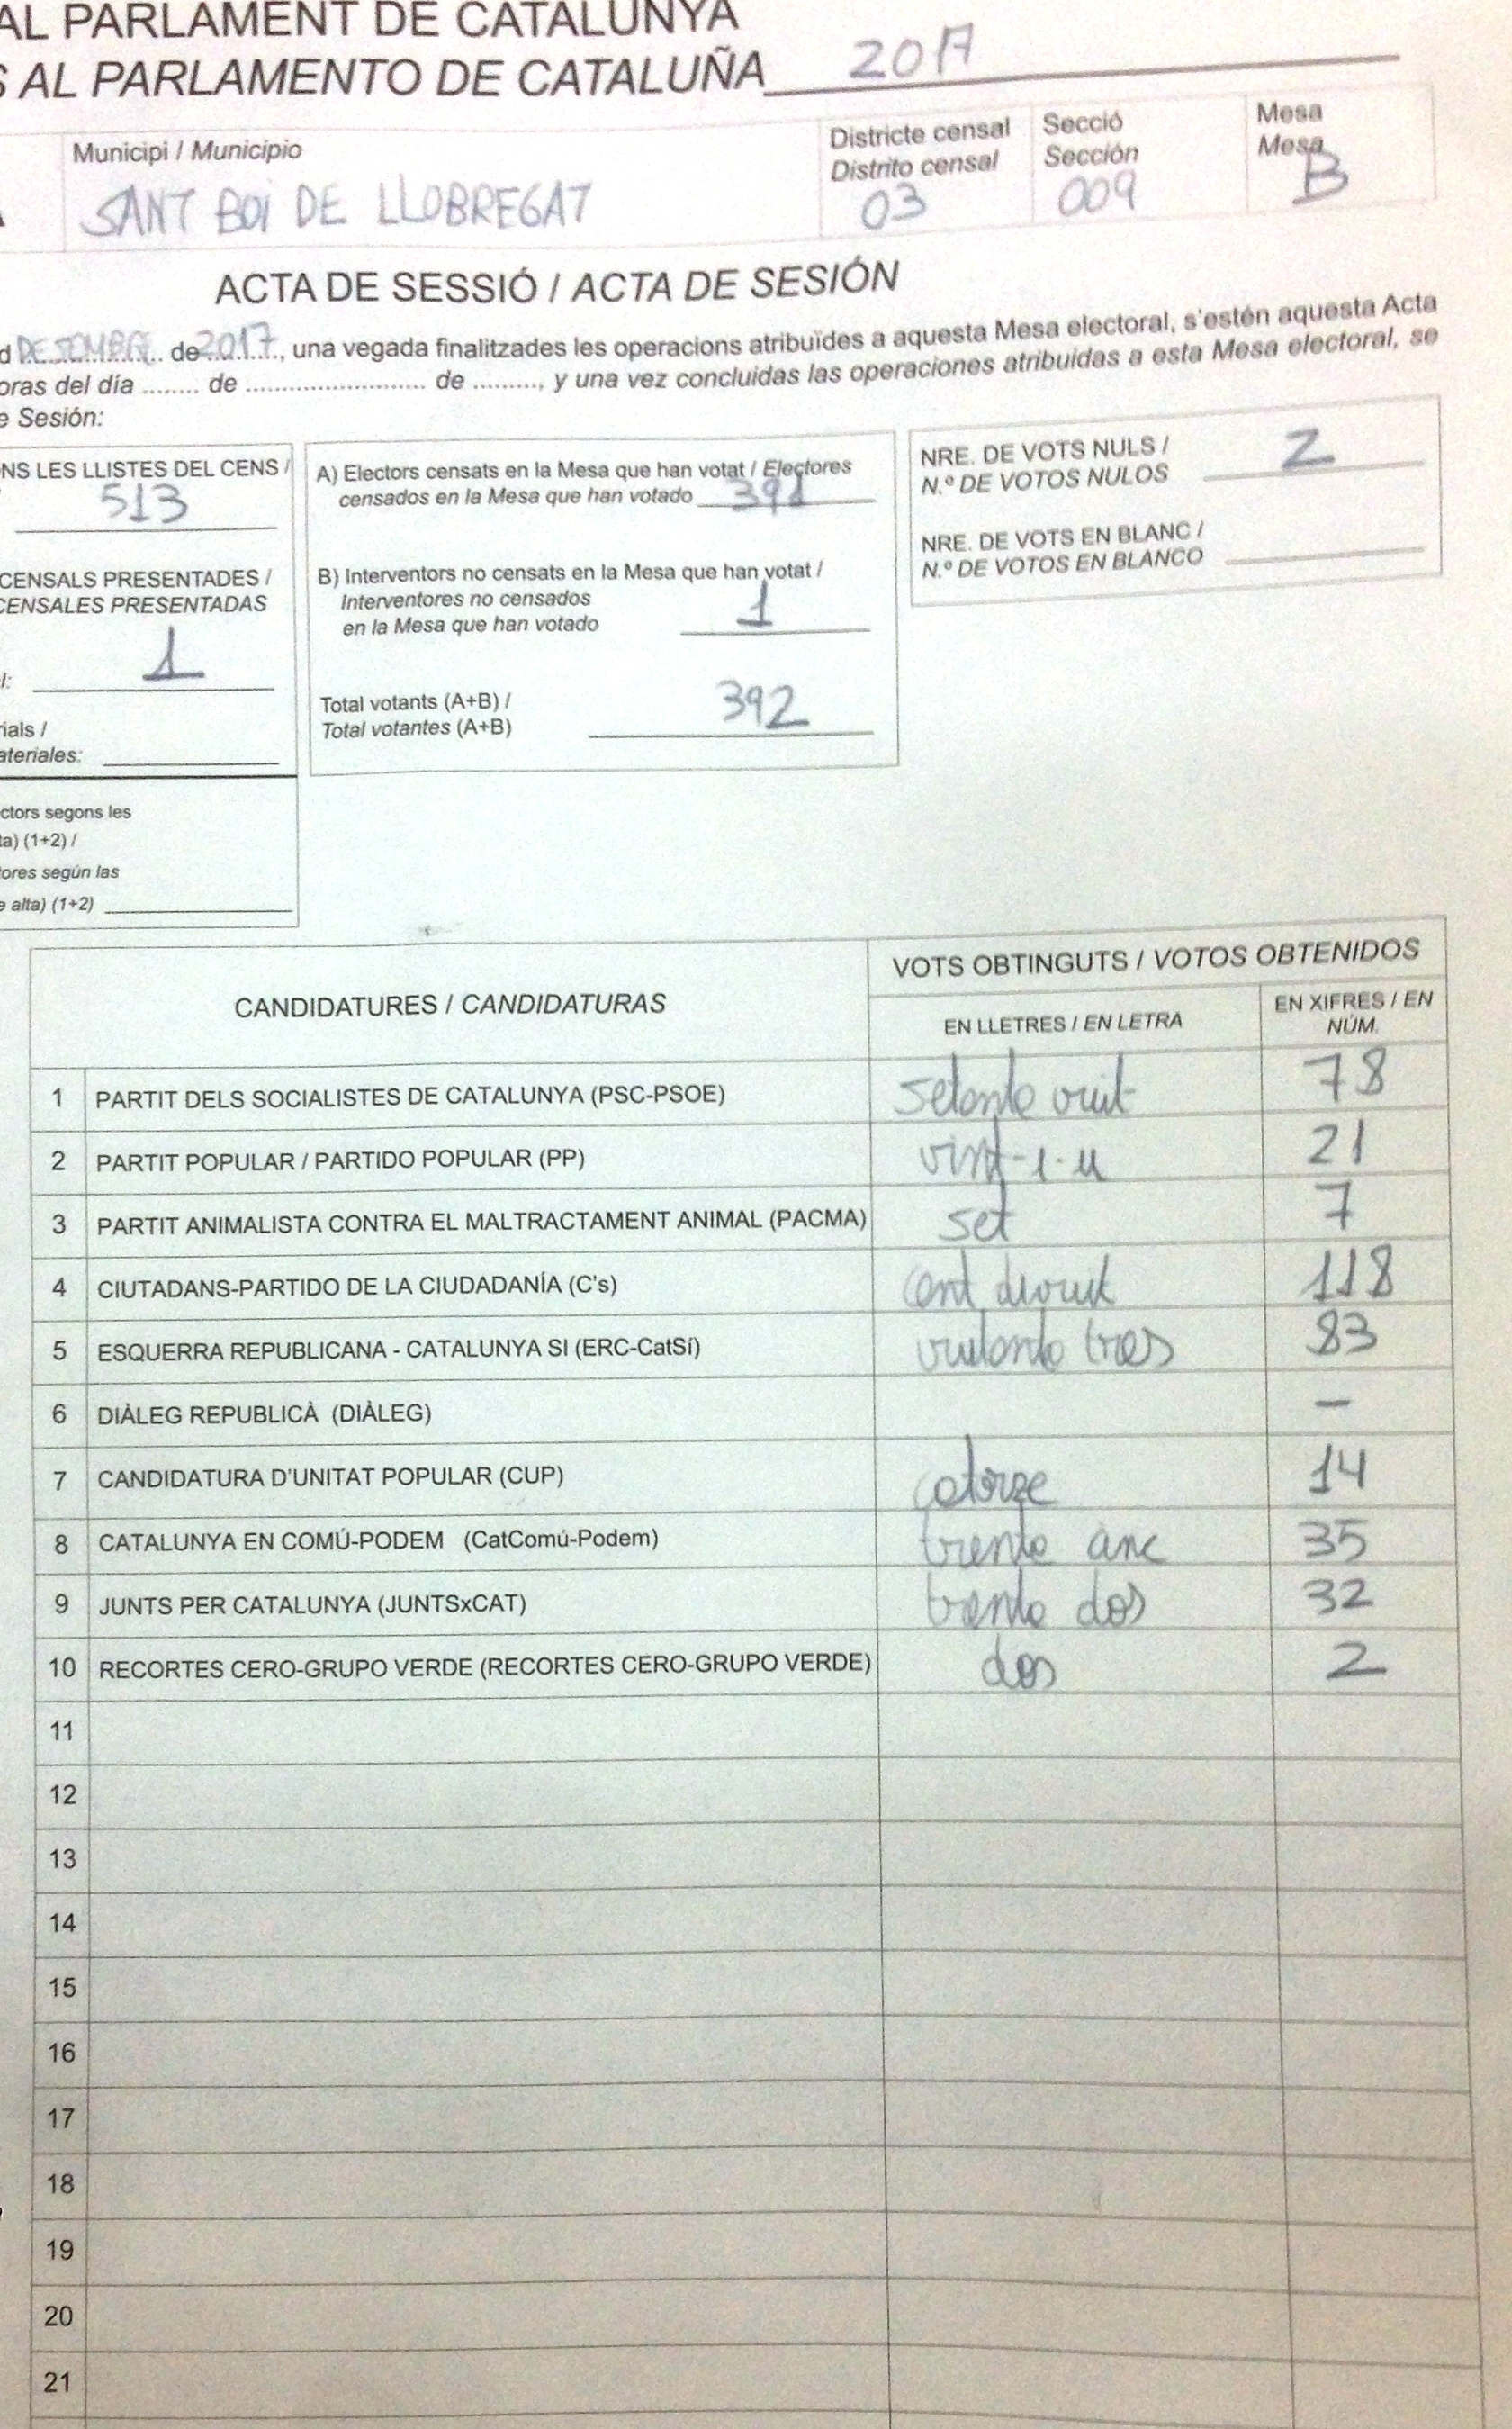 AL PARLAMENT DE CATALUNYA
S AL PARLAMENTO DE CATALUÑA 2017
Municipi / Municipio
SANT BOI DE LLOBREGAT
Districte censal
Distrito censal
03
Secció
Sección
009
Mesa
Mesa
B
ACTA DE SESSIÓ / ACTA DE SESIÓN
d DE TEMBRE de 2017, una vegada finalitzades les operacions atribuïdes a aquesta Mesa electoral, s'estén aquesta Acta
oras del día ........ de ........................ de ........, y una vez concluidas las operaciones atribuidas a esta Mesa electoral, se
e Sesión:
NS LES LLISTES DEL CENS /
513
CENSALS PRESENTADES /
CENSALES PRESENTADAS
l: 1
rials /
ateriales:
ctors segons les
ta) (1+2) /
ores según las
e alta) (1+2)
A) Electors censats en la Mesa que han votat / Electores
censados en la Mesa que han votado 391
B) Interventors no censats en la Mesa que han votat /
Interventores no censados
en la Mesa que han votado 1
Total votants (A+B) /
Total votantes (A+B) 392
NRE. DE VOTS NULS /
N.º DE VOTOS NULOS 2
NRE. DE VOTS EN BLANC /
N.º DE VOTOS EN BLANCO
CANDIDATURES / CANDIDATURAS
VOTS OBTINGUTS / VOTOS OBTENIDOS
EN LLETRES / EN LETRA
EN XIFRES / EN NÚM.
1 PARTIT DELS SOCIALISTES DE CATALUNYA (PSC-PSOE) setanta vuit 78
2 PARTIT POPULAR / PARTIDO POPULAR (PP) vint-i-u 21
3 PARTIT ANIMALISTA CONTRA EL MALTRACTAMENT ANIMAL (PACMA) set 7
4 CIUTADANS-PARTIDO DE LA CIUDADANÍA (C's) cent divuit 118
5 ESQUERRA REPUBLICANA - CATALUNYA SI (ERC-CatSí) vuitanta tres 83
6 DIÀLEG REPUBLICÀ (DIÀLEG) -
7 CANDIDATURA D'UNITAT POPULAR (CUP) catorze 14
8 CATALUNYA EN COMÚ-PODEM (CatComú-Podem) trenta cinc 35
9 JUNTS PER CATALUNYA (JUNTSxCAT) trenta dos 32
10 RECORTES CERO-GRUPO VERDE (RECORTES CERO-GRUPO VERDE) dos 2
11
12
13
14
15
16
17
18
19
20
21